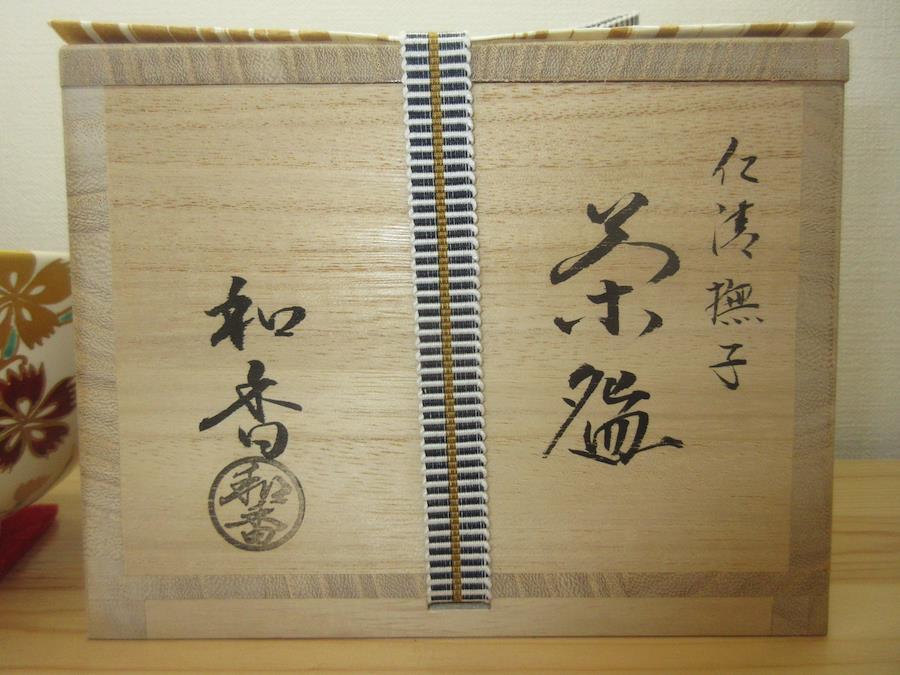 仁清撫子
茶盌
和香
和香